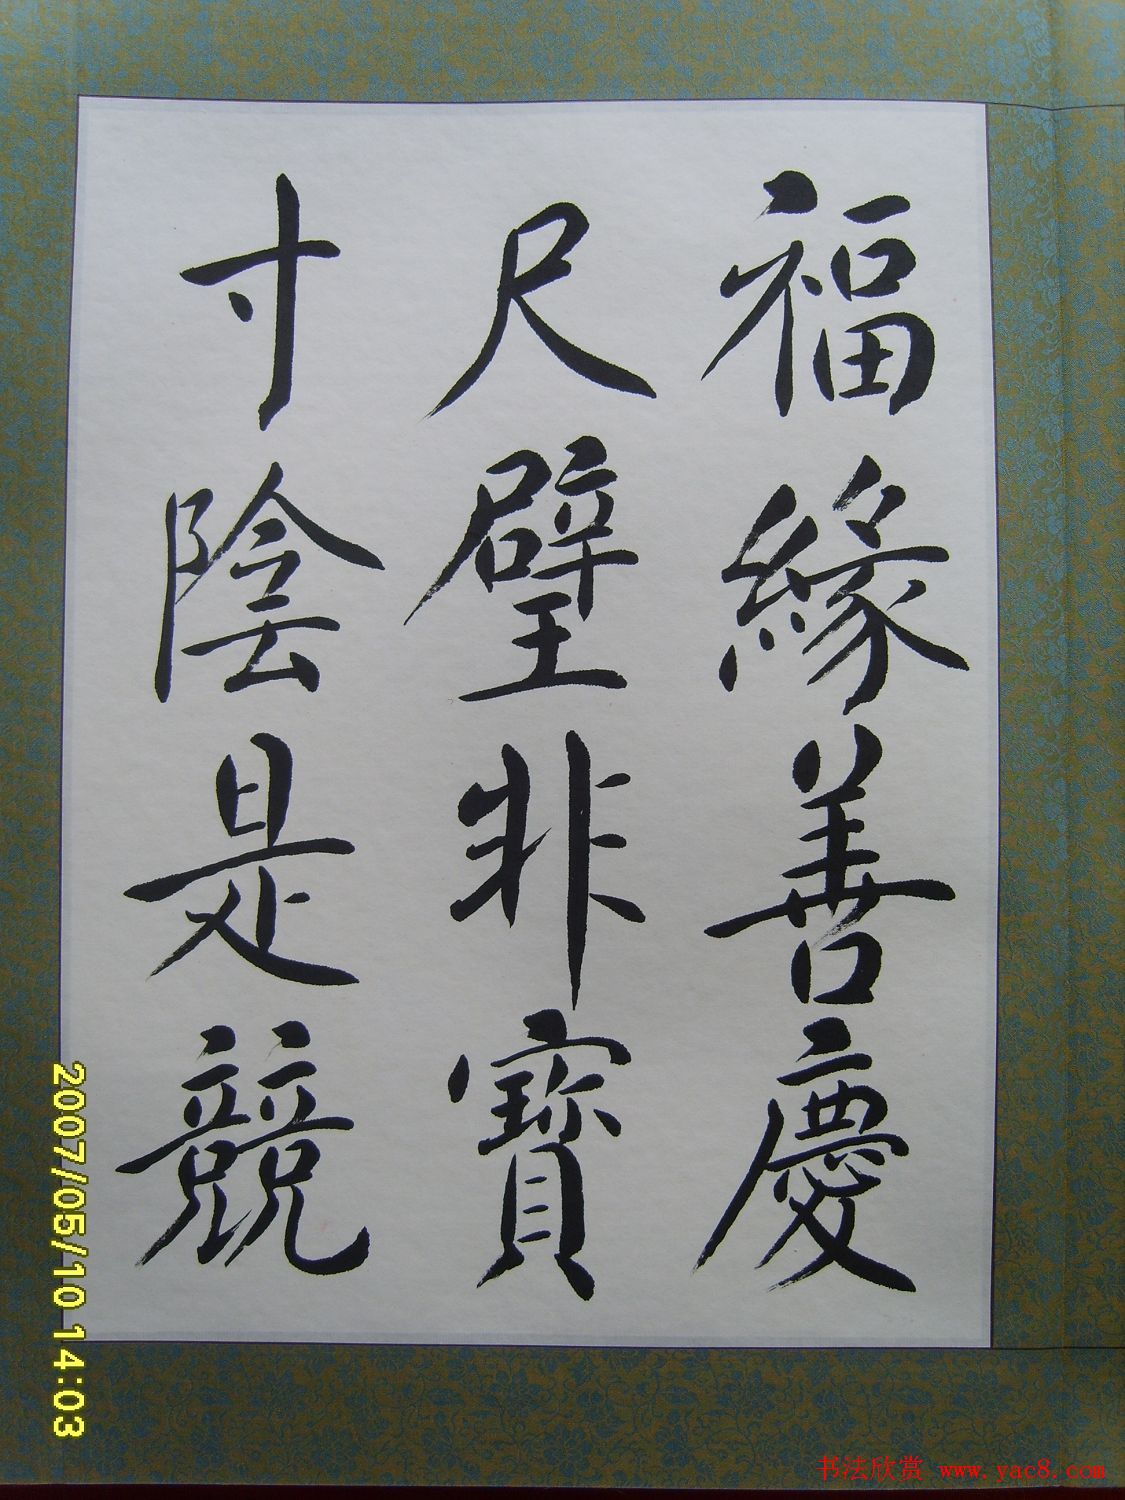 福緣善慶
尺璧非寶
寸陰是競
2007/05/10 14:03
书法欣赏 www.yac8.com